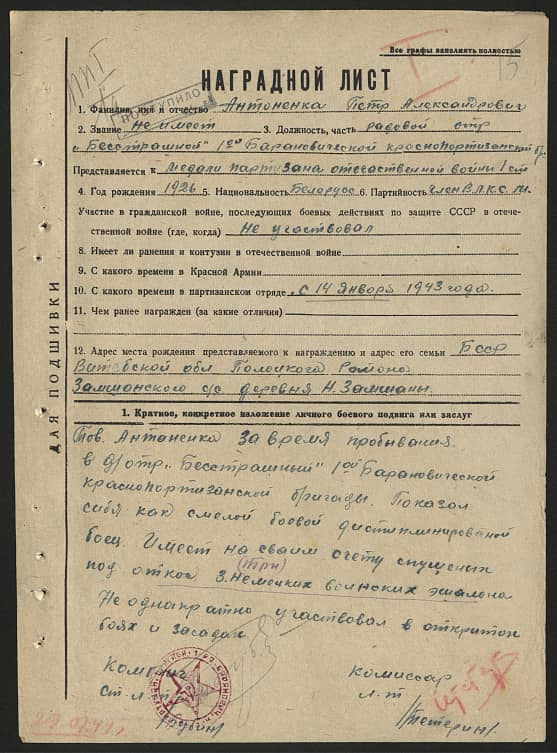 Все графы заполнять полностью
I
15
ПОСТУПИЛО
НАГРАДНОЙ ЛИСТ
1. Фамилия, имя и отчество Антоненка Петр Александрович
2. Звание не имеет 3. Должность, часть радовой отр
„Бесстрашный" 1ой Барановической краснопортизанской бр.
Представляется к медали партизана отечественной войны 1 ст
4. Год рождения 1926 5. Национальность Белорусс 6. Партийность член В.Л.К.С.М.
Участие в гражданской войне, последующих боевых действиях по защите СССР в отече-
ственной войне (где, когда) Не участвовал
8. Имеет ли ранения и контузии в отечественной войне
9. С какого времени в Красной Армии
10. С какого времени в партизанском отряде с 14 Января 1943 года.
11. Чем ранее награжден (за какие отличия)
12. Адрес места рождения представляемого к награждению и адрес его семьи БССР
Витебской обл Полоцкого Района
с/с деревня Н.
ДЛЯ ПОДШИВКИ
1. Краткое, конкретное изложение личного боевого подвига или заслуг
Тов. Антаненка за время пробывания
в п/отр „Бесстрашный" 1ой Барановической
краснопортизанской бригады. Показал
себя как смелой боевой дистиплинированой
боец. Имеет на сваим счету спущеных
(три)
под откос 3. Немецких воинских эшалона
Не однакратно участвовал в откритом
боях и засадах
Комбриг Комиссар
ст. л-т л-т
/Тетерин/